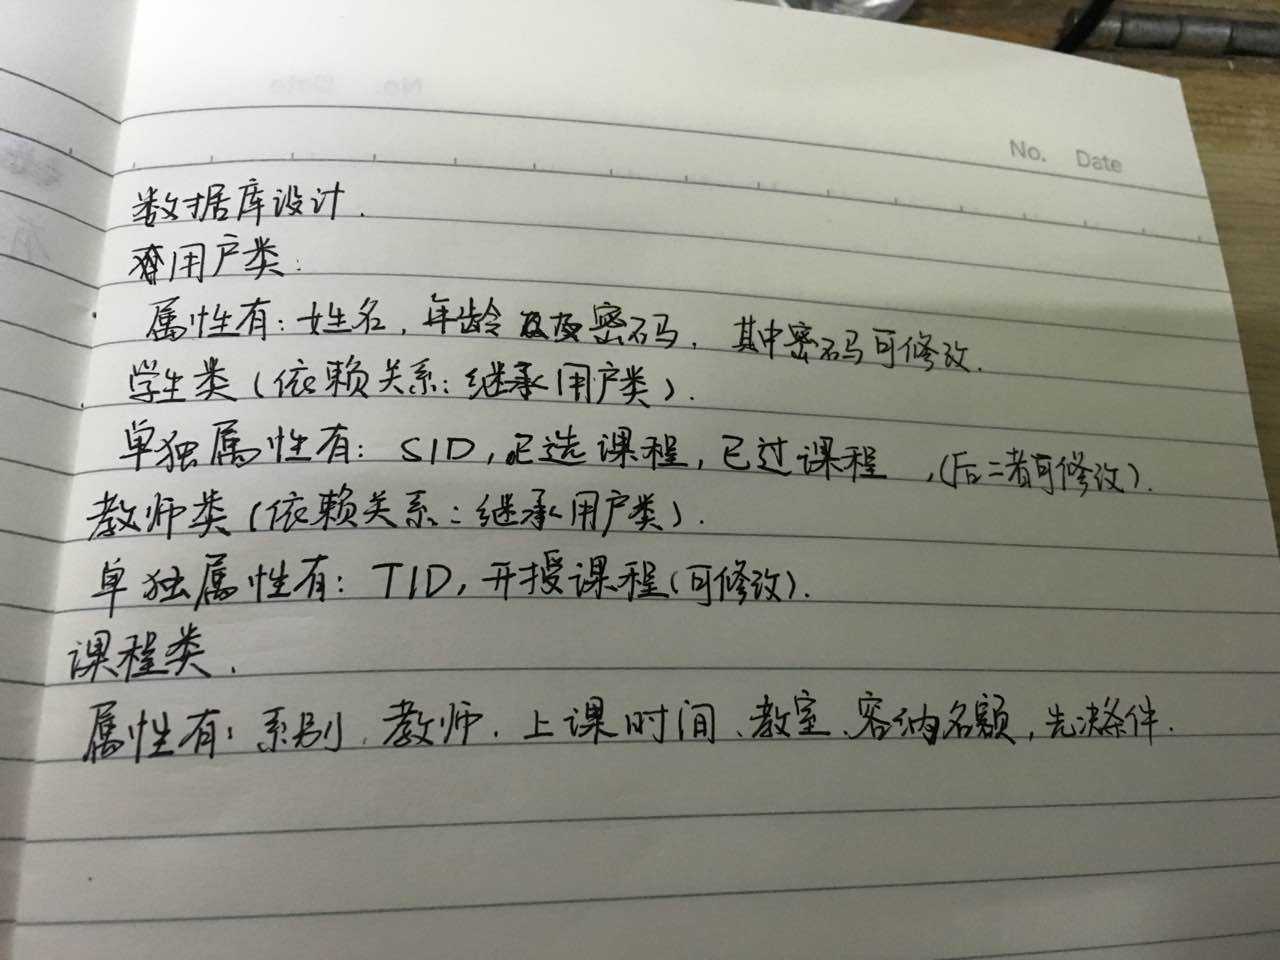 No. Date
数据库设计.
用户类:
属性有: 姓名, 年龄及密码, 其中密码可修改.
学生类(依赖关系: 继承用户类).
单独属性有: SID, 已选课程, 已过课程, (后二者可修改).
教师类(依赖关系: 继承用户类).
单独属性有: TID, 开授课程(可修改).
课程类.
属性有: 系别、教师、上课时间、教室、容纳名额, 先决条件.